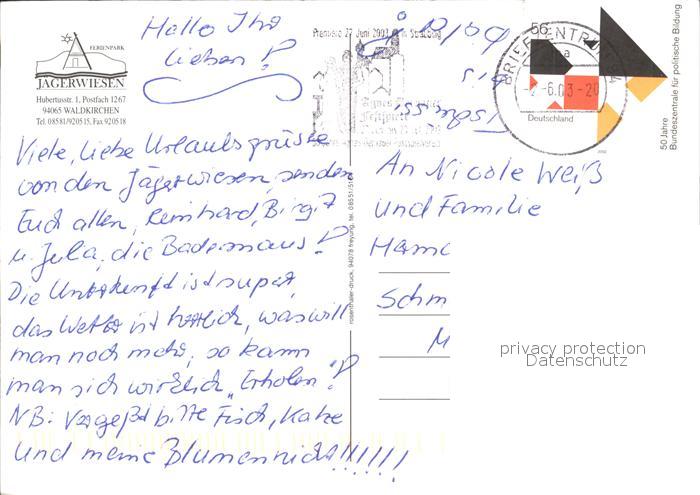 FERIENPARK
JÄGERWIESEN
Hubertusstr. 1, Postfach 1267
94065 WALDKIRCHEN
Tel. 08581/920515, Fax 920518
Hallo Ihr
Lieben!
Viele, liebe Urlaubsgrüsse
von den Jägerwiesen, senden
Euch allen, Reinhard, Birgit
u. Jula, die Bademaus!
Die Unterkunft ist super,
das Wetter ist herrlich, was will
man noch mehr, so kann
man sich wirklich „Erholen"!
NB: Vergeßt bitte Fisch, Katze
und meine Blumen nicht!!!!!!
rosenthaler-druck, 94078 freyung, tel. 08551/
Premiere 27 Juni 2003 in Straubing
Agnes
Festspiele
BRIEFZENTRUM 94
a
-6.03-20
56
Deutschland
2002
50 Jahre
Bundeszentrale für politische Bildung
Bis
An Nicole Weiß
und Familie
Schm
M
privacy protection
Datenschutz